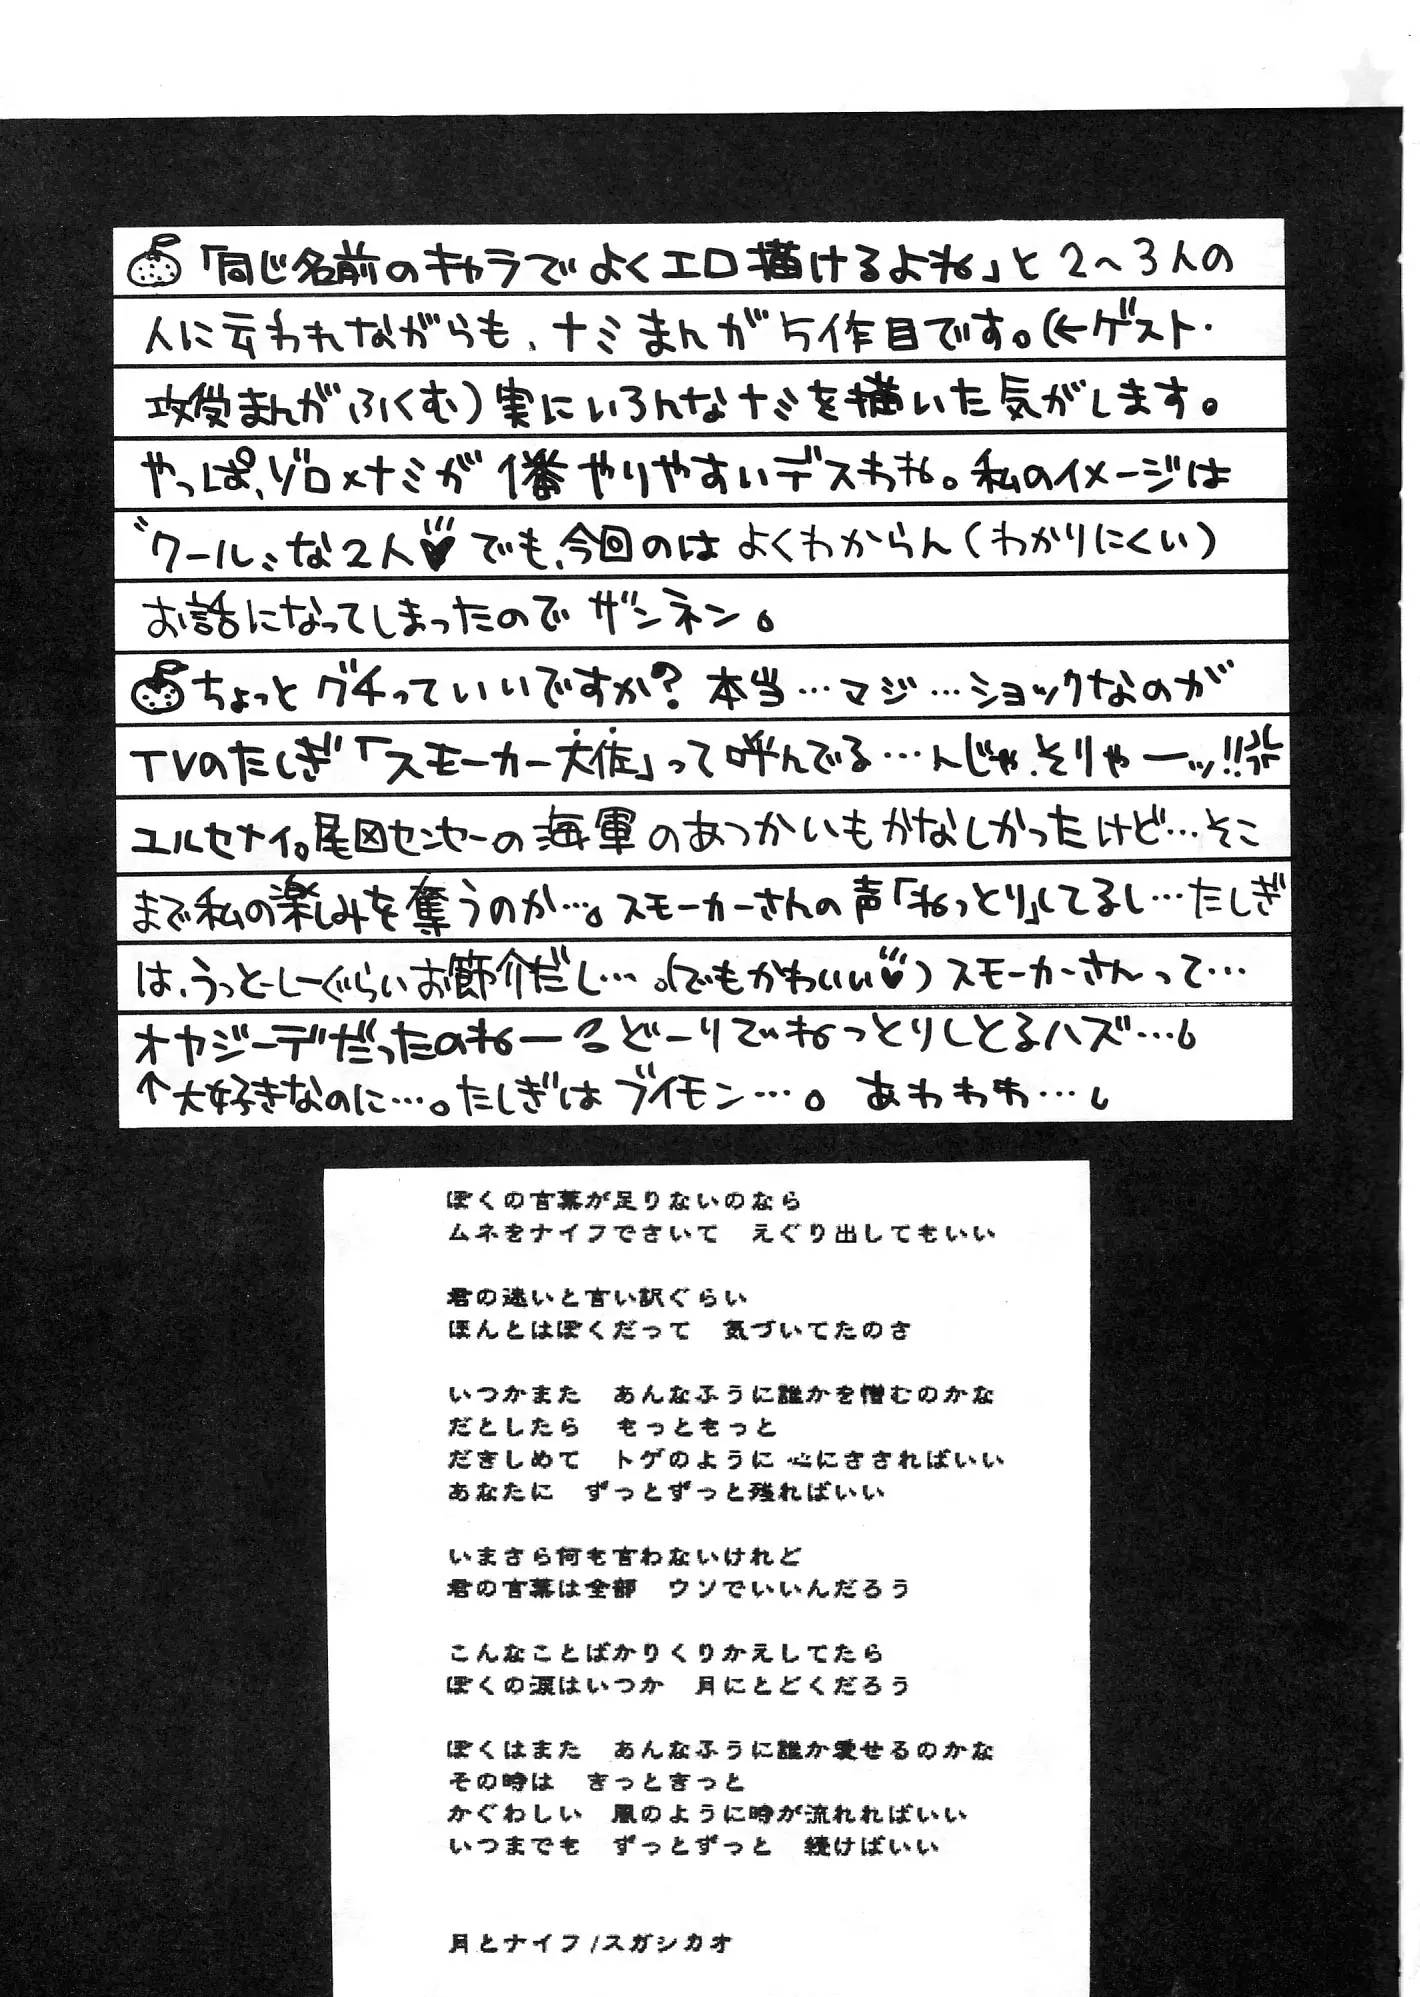 「同じ名前のキャラでよくエロ描けるよね」と2〜3人の
人に云われながらも、ナミまんが5作目です。(←ゲスト・
攻受まんがふくむ)実にいろんなナミを描いた気がします。
やっぱ、ゾロ×ナミが1番やりやすいデスわね。私のイメージは
〝クール〟な2人♥でも、今回のは よくわからん(わかりにくい)
お話になってしまったのでザンネン。
ちょっとグチっていいですか?本当…マジ…ショックなのが
TVのたしぎ「スモーカー大佐」って呼んでる…んじゃ、そりゃーッ!!
ユルセナイ。尾田センセーの海軍のあつかいもかなしかったけど…そこ
まで私の楽しみを奪うのか…。スモーカーさんの声「ねっとり」してるし…たしぎ
は、うっとーしーぐらいお節介だし…。(でもかわいい♥)スモーカーさんって…
オヤジーデだったのねーどーりでねっとりしとるハズ…。
↑大好きなのに…。たしぎはブイモン…。あわわわ…。
ぼくの言葉が足りないのなら
ムネをナイフでさいて　えぐり出してもいい

君の迷いと言い訳ぐらい
ほんとはぼくだって　気づいてたのさ

いつかまた　あんなふうに誰かを憎むのかな
だとしたら　もっともっと
だきしめて　トゲのように 心にささればいい
あなたに　ずっとずっと残ればいい

いまさら何も言わないけれど
君の言葉は全部　ウソでいいんだろう

こんなことばかりくりかえしてたら
ぼくの涙はいつか　月にとどくだろう

ぼくはまた　あんなふうに誰か愛せるのかな
その時は　きっときっと
かぐわしい　風のように時が流れればいい
いつまでも　ずっとずっと　続けばいい

月とナイフ/スガシカオ